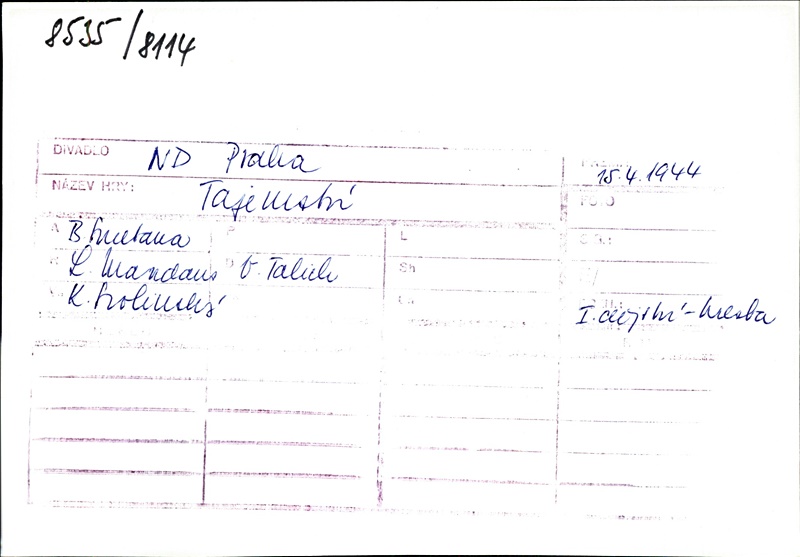 8535/8114
DIVADLO ND Praha
15.4.1944
NÁZEV HRY: Tajemství
FOTO
A B. Smetana
L
L. Mandaus V. Talich
Sh
K. Svolinský
I. dějství - kresba